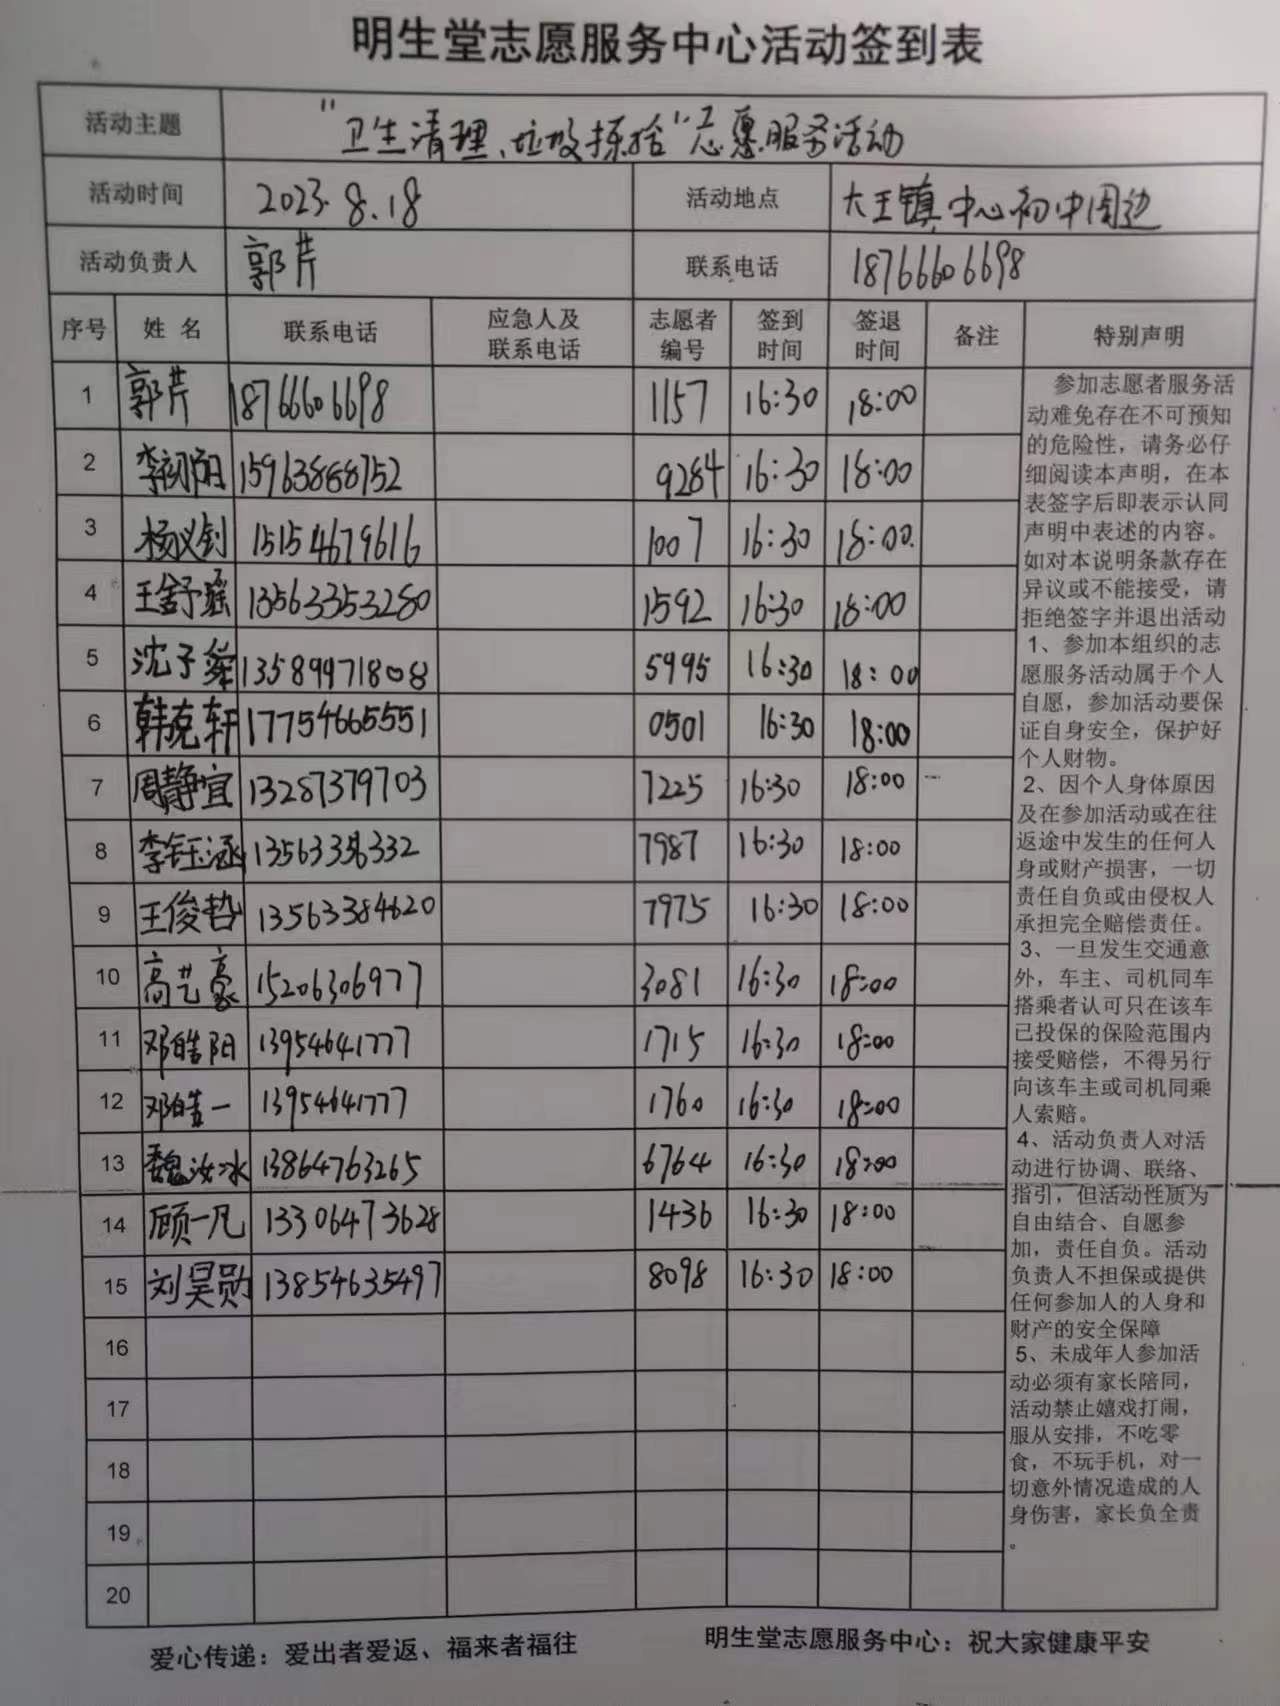 明生堂志愿服务中心活动签到表
活动主题 "卫生清理、垃圾捡拾"志愿服务活动
活动时间 2023.8.18 活动地点 大王镇中心初中周边
活动负责人 郭芹 联系电话 18766606698
序号 姓名 联系电话 应急人及联系电话 志愿者编号 签到时间 签退时间 备注 特别声明
1 郭芹 18766606698 1157 16:30 18:00
2 李初阳 15963888752 9284 16:30 18:00
3 杨义钊 15154679616 1007 16:30 18:00.
4 王舒瑶 13563353280 1592 16:30 18:00
5 沈子舜 13589971808 5995 16:30 18:00
6 韩克轩 17754665551 0501 16:30 18:00
7 周静宜 13287379703 7225 16:30 18:00
8 李钰涵 7987 16:30 18:00
9 王俊哲 13563384620 7975 16:30 18:00
10 高艺豪 15206306977 3081 16:30 18:00
11 邓皓阳 13954641777 1715 16:30 18:00
12 邓皓一 13954641777 1760 16:30 18:00
13 魏汝冰 13864763265 6764 16:30 18:00
14 顾一凡 13306473628 1436 16:30 18:00
15 刘昊勋 13854635497 8098 16:30 18:00
16
17
18
19
20
参加志愿者服务活
动难免存在不可预知
的危险性，请务必仔
细阅读本声明，在本
表签字后即表示认同
声明中表述的内容。
如对本说明条款存在
异议或不能接受，请
拒绝签字并退出活动
1、参加本组织的志
愿服务活动属于个人
自愿，参加活动要保
证自身安全，保护好
个人财物。
2、因个人身体原因
及在参加活动或在往
返途中发生的任何人
身或财产损害，一切
责任自负或由侵权人
承担完全赔偿责任。
3、一旦发生交通意
外，车主、司机同车
搭乘者认可只在该车
已投保的保险范围内
接受赔偿，不得另行
向该车主或司机同乘
人索赔。
4、活动负责人对活
动进行协调、联络、
指引，但活动性质为
自由结合、自愿参
加，责任自负。活动
负责人不担保或提供
任何参加人的人身和
财产的安全保障
5、未成年人参加活
动必须有家长陪同，
活动禁止嬉戏打闹，
服从安排，不吃零
食，不玩手机，对一
切意外情况造成的人
身伤害，家长负全责
。
爱心传递：爱出者爱返、福来者福往 明生堂志愿服务中心：祝大家健康平安